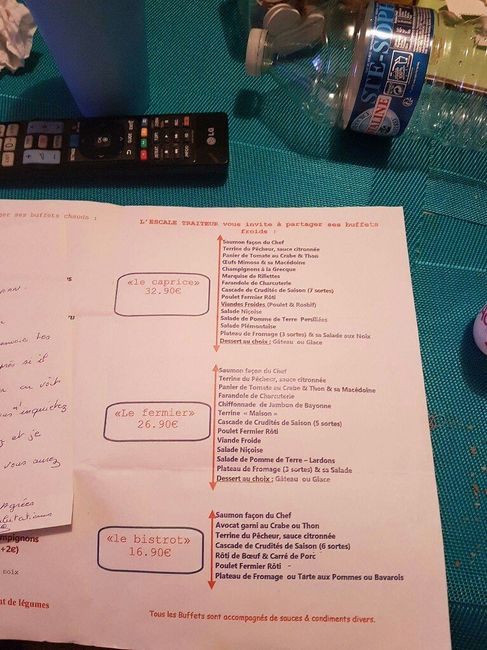 STE-SOPH
ALINE
LG
ger ses buffets chauds :
L'ESCALE TRAITEUR vous invite à partager ses buffets
froids :
«le caprice»
32.90€
Saumon façon du Chef
Terrine du Pêcheur, sauce citronnée
Panier de Tomate au Crabe & Thon
Œufs Mimosa & sa Macédoine
Champignons à la Grecque
Marquise de Rillettes
Farandole de Charcuterie
Cascade de Crudités de Saison (7 sortes)
Poulet Fermier Rôti
Viandes Froides (Poulet & Rosbif)
Salade Niçoise
Salade de Pomme de Terre Persillées
Salade Piémontaise
Plateau de Fromage (3 sortes) & sa Salade aux Noix
Dessert au choix : Gâteau ou Glace
«Le fermier»
26.90€
Saumon façon du Chef
Terrine du Pêcheur, sauce citronnée
Panier de Tomate au Crabe & Thon & sa Macédoine
Farandole de Charcuterie
Chiffonnade de Jambon de Bayonne
Terrine « Maison »
Cascade de Crudités de Saison (5 sortes)
Poulet Fermier Rôti
Viande Froide
Salade Niçoise
Salade de Pomme de Terre – Lardons
Plateau de Fromage (3 sortes) & sa Salade
Dessert au choix : Gâteau ou Glace
«le bistrot»
16.90€
Saumon façon du Chef
Avocat garni au Crabe ou Thon
Terrine du Pêcheur, sauce citronnée
Cascade de Crudités de Saison (6 sortes)
Rôti de Bœuf & Carré de Porc
Poulet Fermier Rôti -
Plateau de Fromage ou Tarte aux Pommes ou Bavarois
Tous les Buffets sont accompagnés de sauces & condiments divers.
si
on
inquietez
et je
vous aurez
agrées
mpignons
(+2€)
noix
nt de légumes